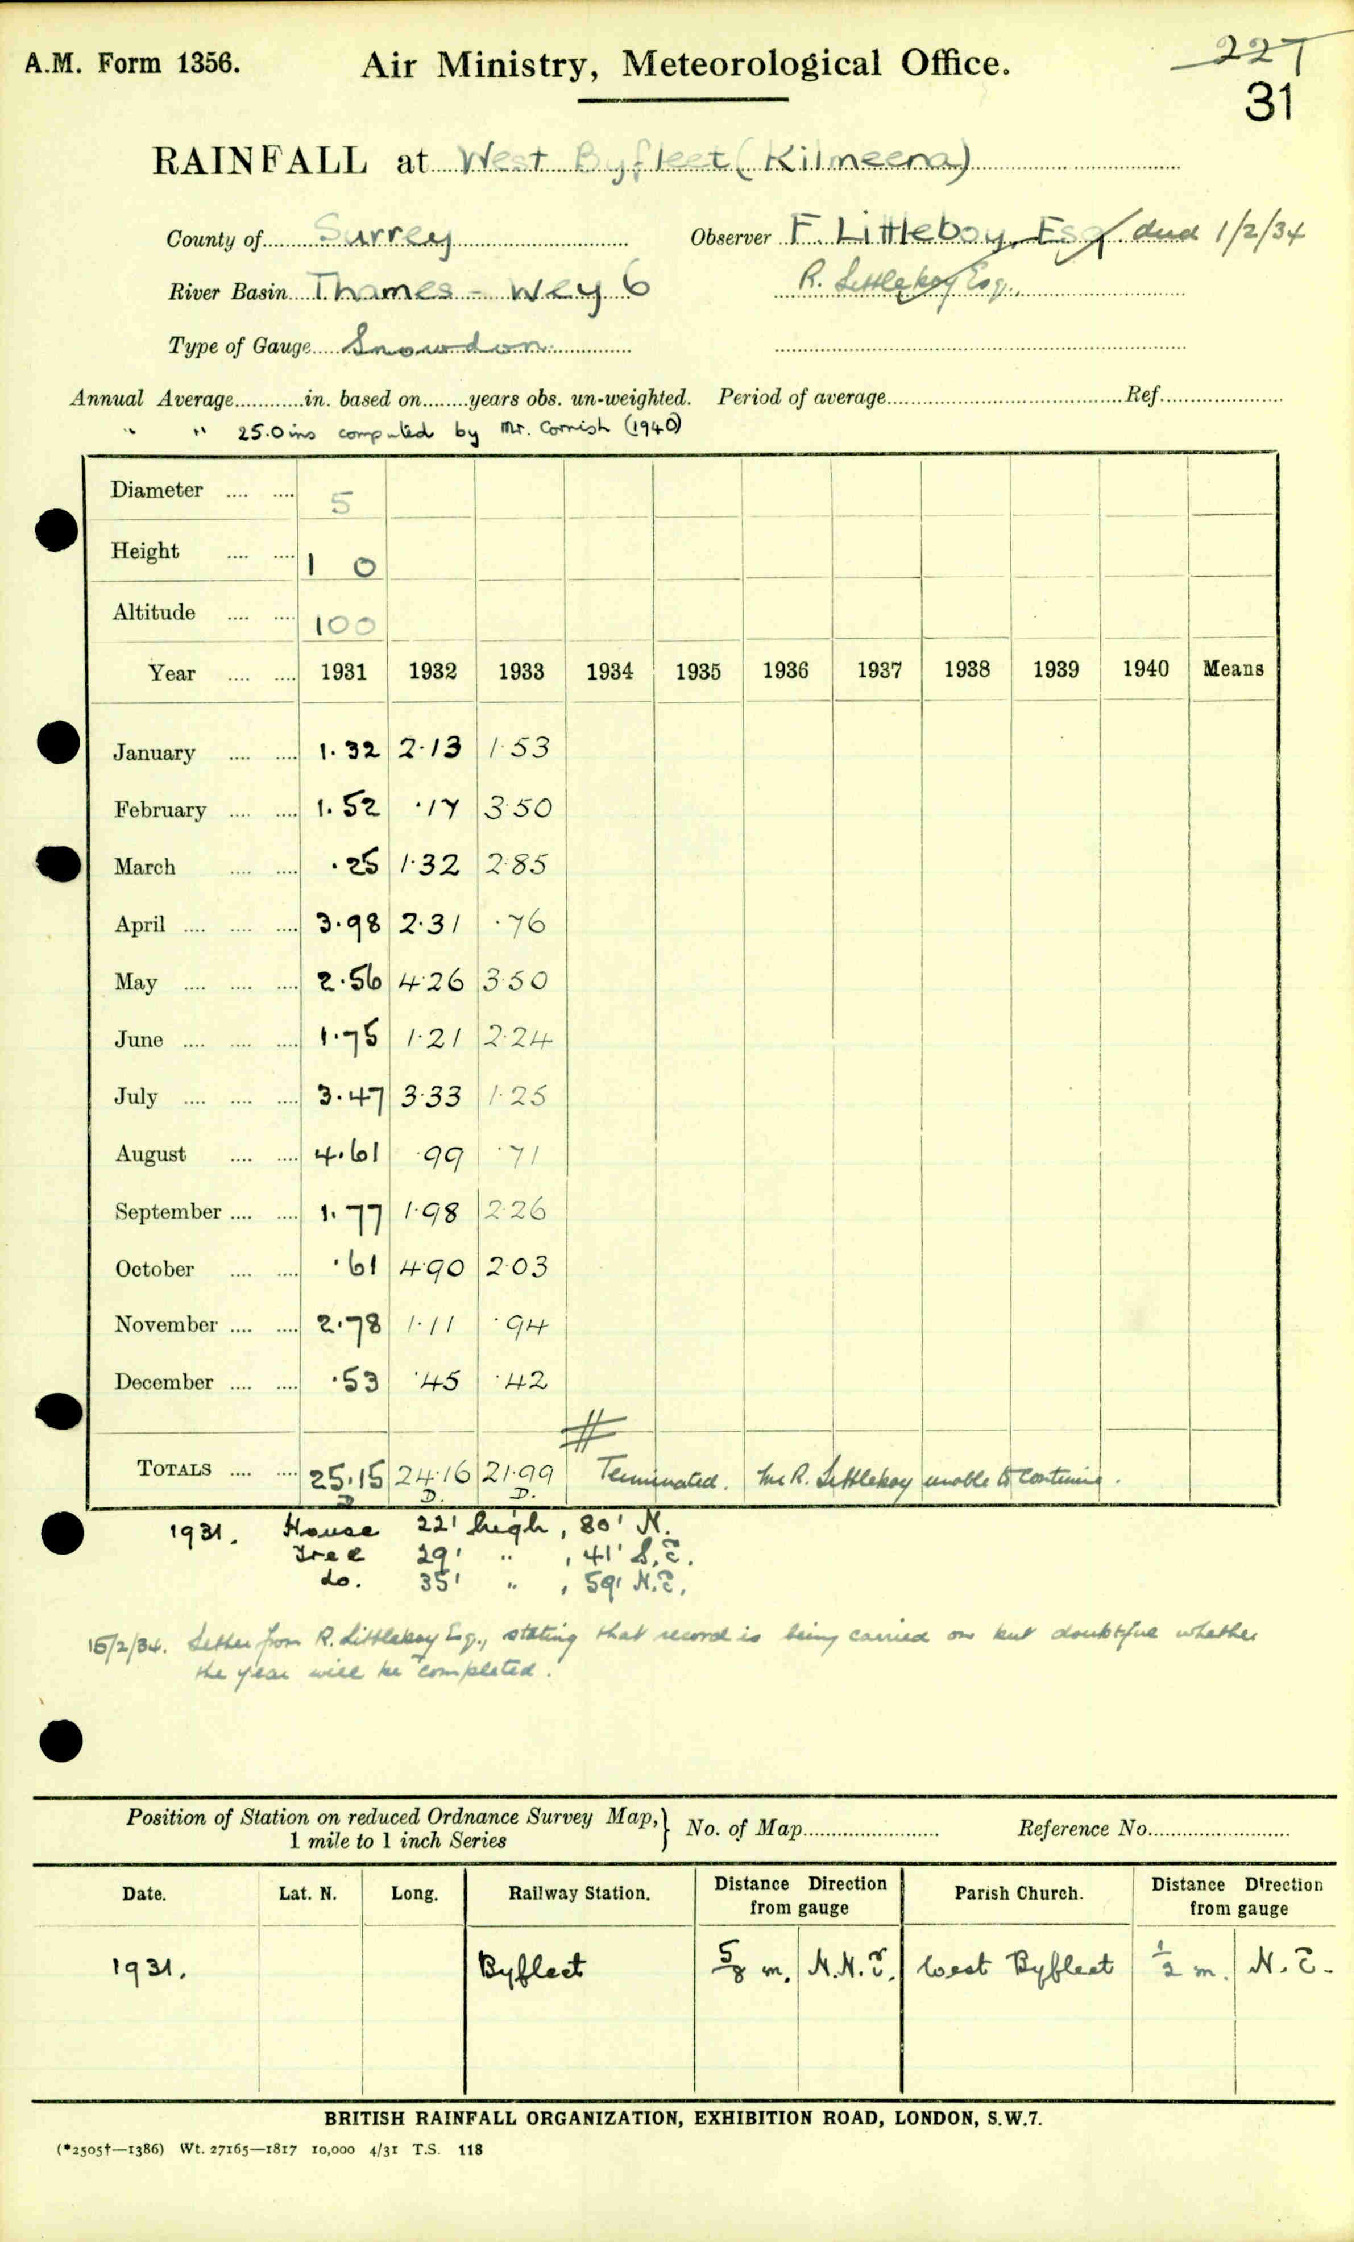 A.M. Form 1356.
Air Ministry, Meteorological Office.
227
31
RAINFALL at West Byfleet (Kilmeena)
County of Surrey Observer F. Littleboy, Esq died 1/2/34
River Basin Thames - Wey 6 R. Littleboy Esq.,
Type of Gauge Snowdon.
Annual Average............in. based on........years obs. un-weighted. Period of average.......... Ref..........
" " 25.0 ins computed by Mr. Cornish (1940)
Diameter .... .... 5
Height .... .... 1 0
Altitude .... .... 100
Year .... .... 1931 1932 1933 1934 1935 1936 1937 1938 1939 1940 Means
January .... .... 1.32 2.13 1.53
February .... .... 1.52 .17 3.50
March .... .... .25 1.32 2.85
April .... .... .... 3.98 2.31 .76
May .... .... .... 2.56 4.26 3.50
June .... .... .... 1.75 1.21 2.24
July .... .... .... 3.47 3.33 1.25
August .... .... 4.61 .99 .71
September .... .... 1.77 1.98 2.26
October .... .... .61 4.90 2.03
November .... .... 2.78 1.11 .94
December .... .... .53 .45 .42
TOTALS .... .... 25.15 24.16 21.99 Terminated. Mr R. Littleboy unable to continue.
D D. D.
1931. House 22' high, 80' N.
Tree 29' " , 41' S.E.
do. 35' " , 59' N.E.
15/2/34. Letter from R. Littleboy Esq., stating that record is being carried on but doubtful whether
the year will be completed.
Position of Station on reduced Ordnance Survey Map,} No. of Map.......... Reference No..........
1 mile to 1 inch Series
Date. Lat. N. Long. Railway Station. Distance Direction from gauge Parish Church. Distance Direction from gauge
1931. Byfleet 5/8 m. N.N.E. West Byfleet 1/2 m. N.E.
BRITISH RAINFALL ORGANIZATION, EXHIBITION ROAD, LONDON, S.W.7.
(*2505†—1386) Wt. 27165—1817 10,000 4/31 T.S. 118